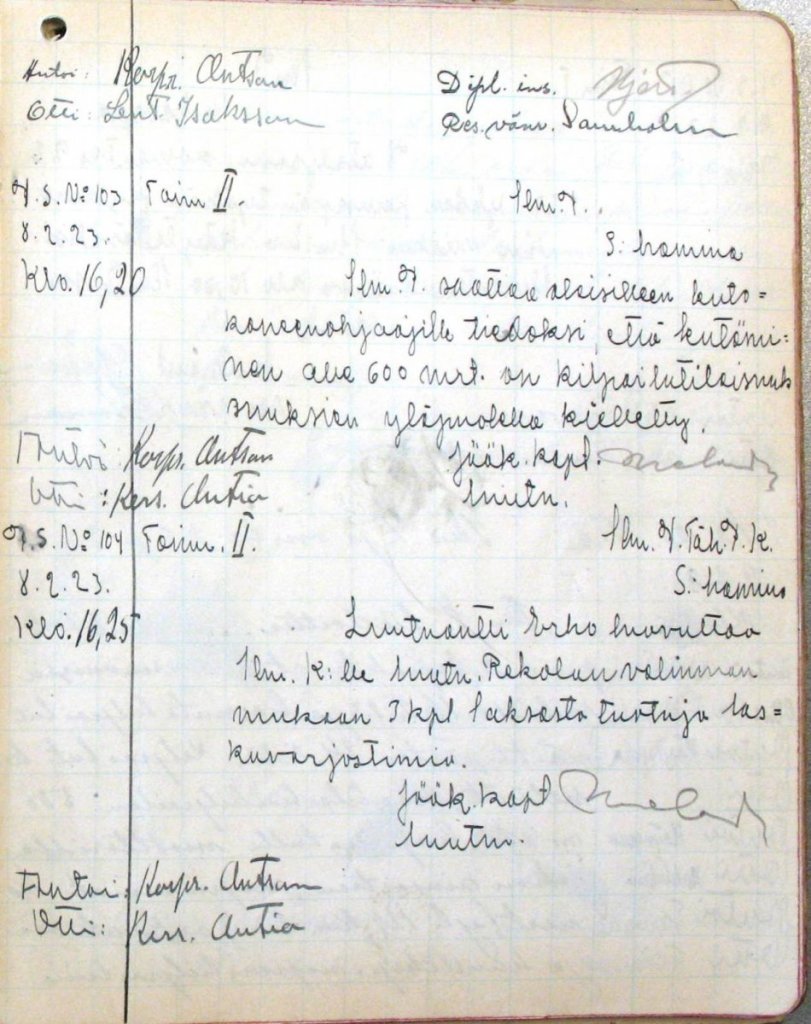 Antoi: Korpr. Antson
Dipl. ins.
Otti: Lent. Isaksson
Res. vänr.
P.S. No 103 Toim II.
Ilm. P.
8.2.23.
S:hamina
Klo. 16,20
Ilm. P. saattaa alaisilleen lento=
koneenohjaajille tiedoksi, että lentämi=
nen alle 600 mtr. on kilpailutilaisuuk
suuksien yläpuolella kielletty.
Antoi: Korpr. Antson
Jääk. kapt.
Otti: Kers. Antia
luutn.
P.S. No 104 Toim. II.
Ilm. P. Täh. P. K.
8.2.23.
S:hamina
Klo. 16,25
Luutnantti Erho luovuttaa
Ilm. K:lle luutn. Rekolan valinnan
mukaan 3 kpl Saksasta tuotuja las=
kuvarjostimia.
Jääk. kapt
luutn.
Antoi: Korpr. Antson
Otti: Kers. Antia